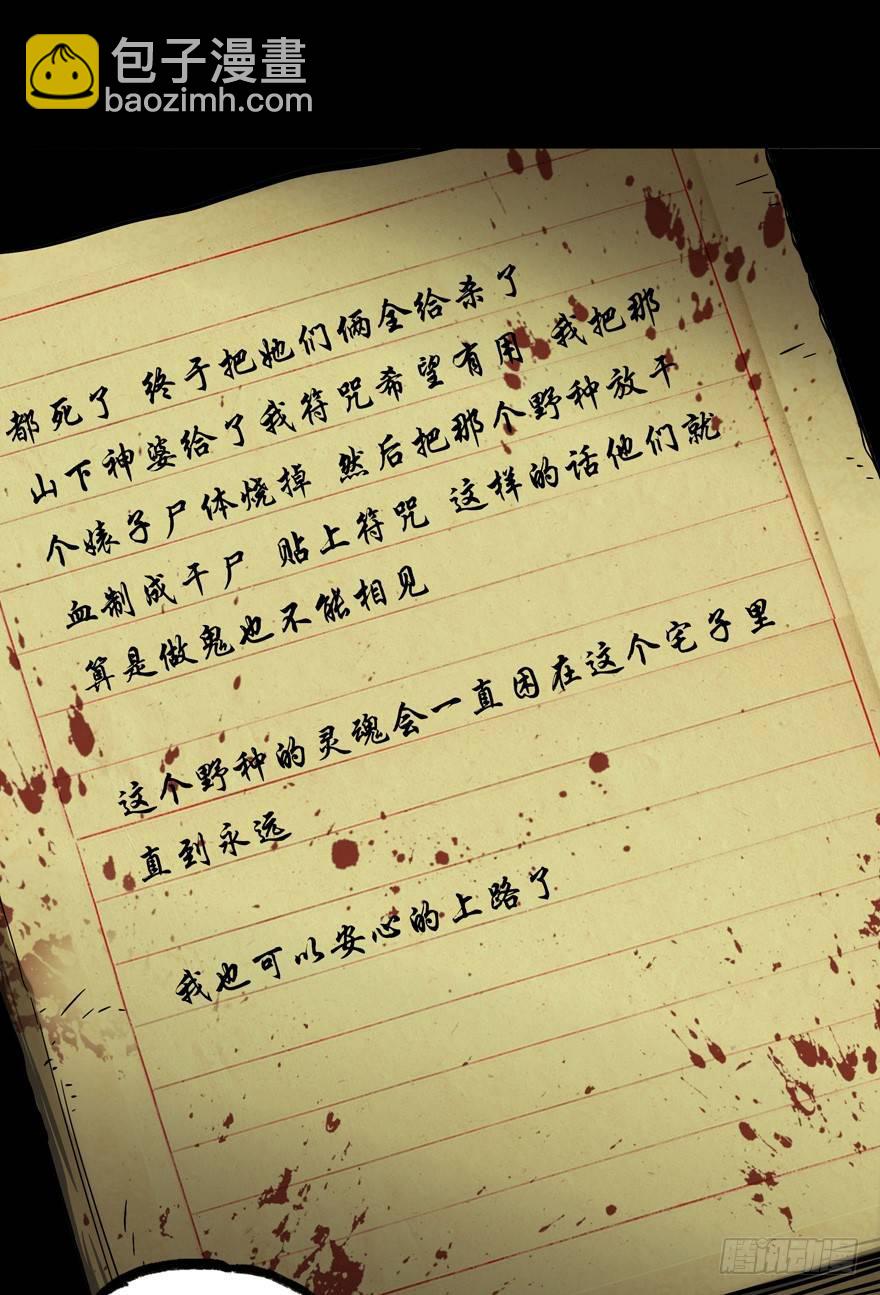 包子漫畫
baozimh.com
都死了 终于把她们俩全给杀了
山下神婆给了我符咒希望有用 我把那
个婊子尸体烧掉 然后把那个野种放干
血制成干尸 贴上符咒 这样的话他们就
算是做鬼也不能相见
这个野种的灵魂会一直困在这个宅子里
直到永远
我也可以安心的上路了
腾讯动漫